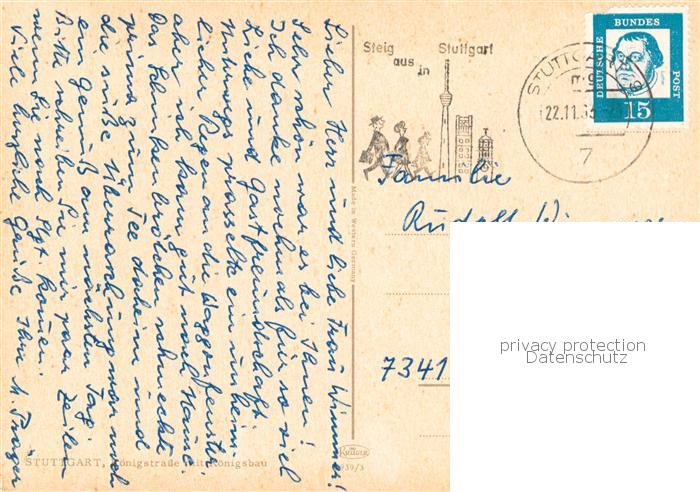 Lieber Herr und liebe Frau Wimmer!
Sehr schön war es bei Ihnen!
Ich danke nochmals für so viel
Liebe und Gastfreundschaft.
Unterwegs prasselte ein unheim-
licher Regen an die Waggonfenster
aber ich kam gut nach Hause.
Das Schinkenbrötchen schmeckte
prima zum Tee daheim und
die süße Überraschung war noch
ein Genuß am nächsten Tag.
Bitte schreiben Sie mir paar Zeilen
wenn Sie nach Stgt. kommen.
Viele herzliche Grüße Ihre M.
STUTTGART, Königstraße mit Königsbau
Made in Western Germany
Krüger
939/3
Steig Stuttgart
aus in
STUTTGART
22.11.63
7
DEUTSCHE BUNDES POST
15
Familie
Rudolf
7341
privacy protection
Datenschutz